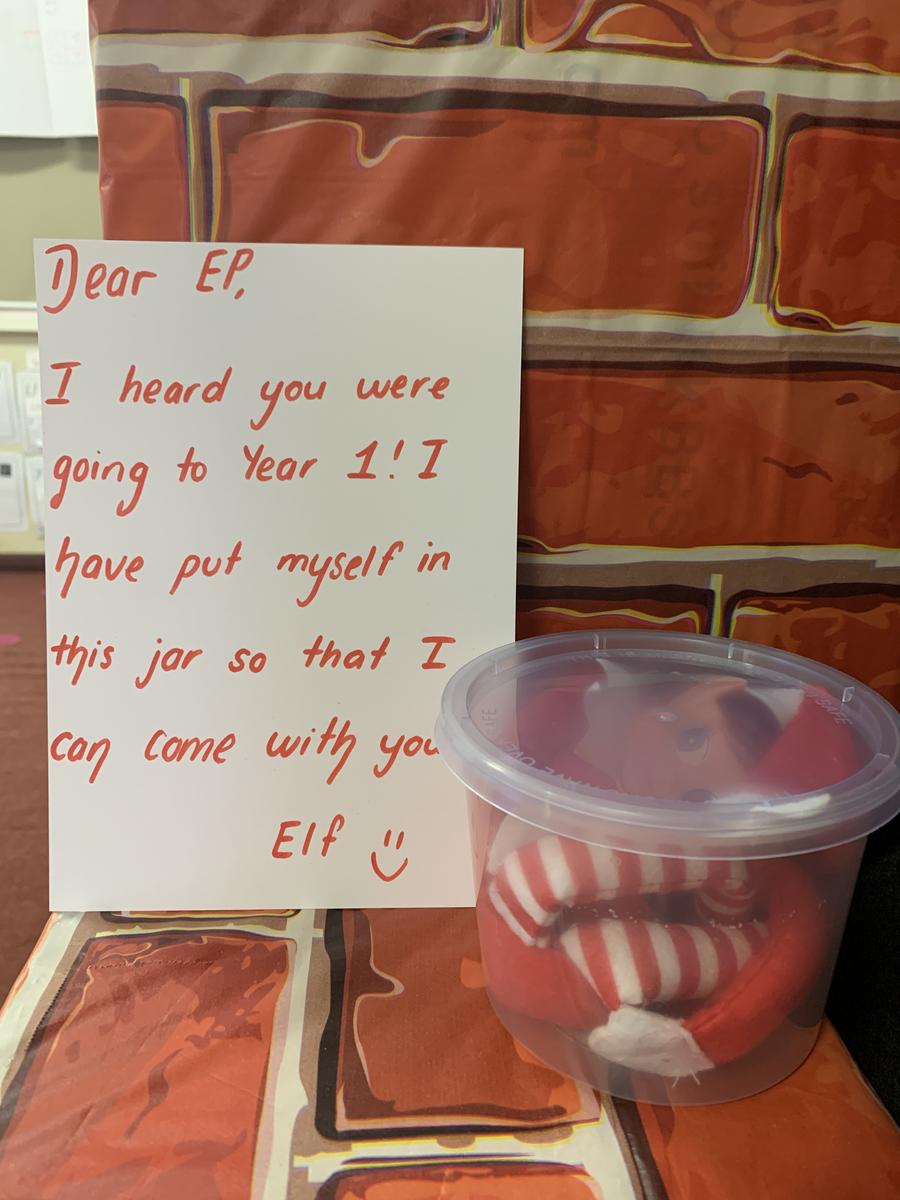 Dear EP,
I heard you were
going to Year 1! I
have put myself in
this jar so that I
can come with you
Elf